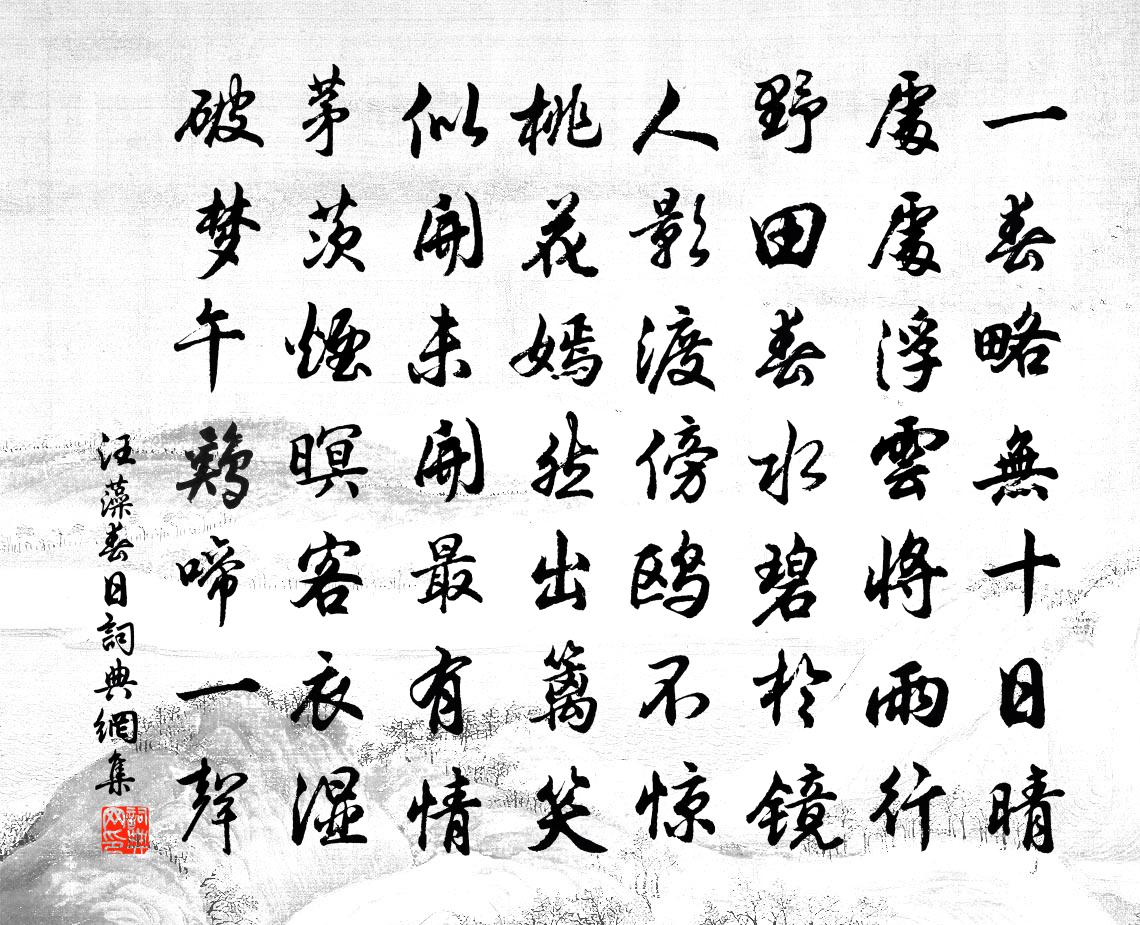 一春略無十日晴
處處浮雲將雨行
野田春水碧於鏡
人影渡傍鸥不惊
桃花嫣然出篱笑
似開未開最有情
茅茨煙暝客衣湿
破梦午鷄啼一聲
汪藻春日詞典網集